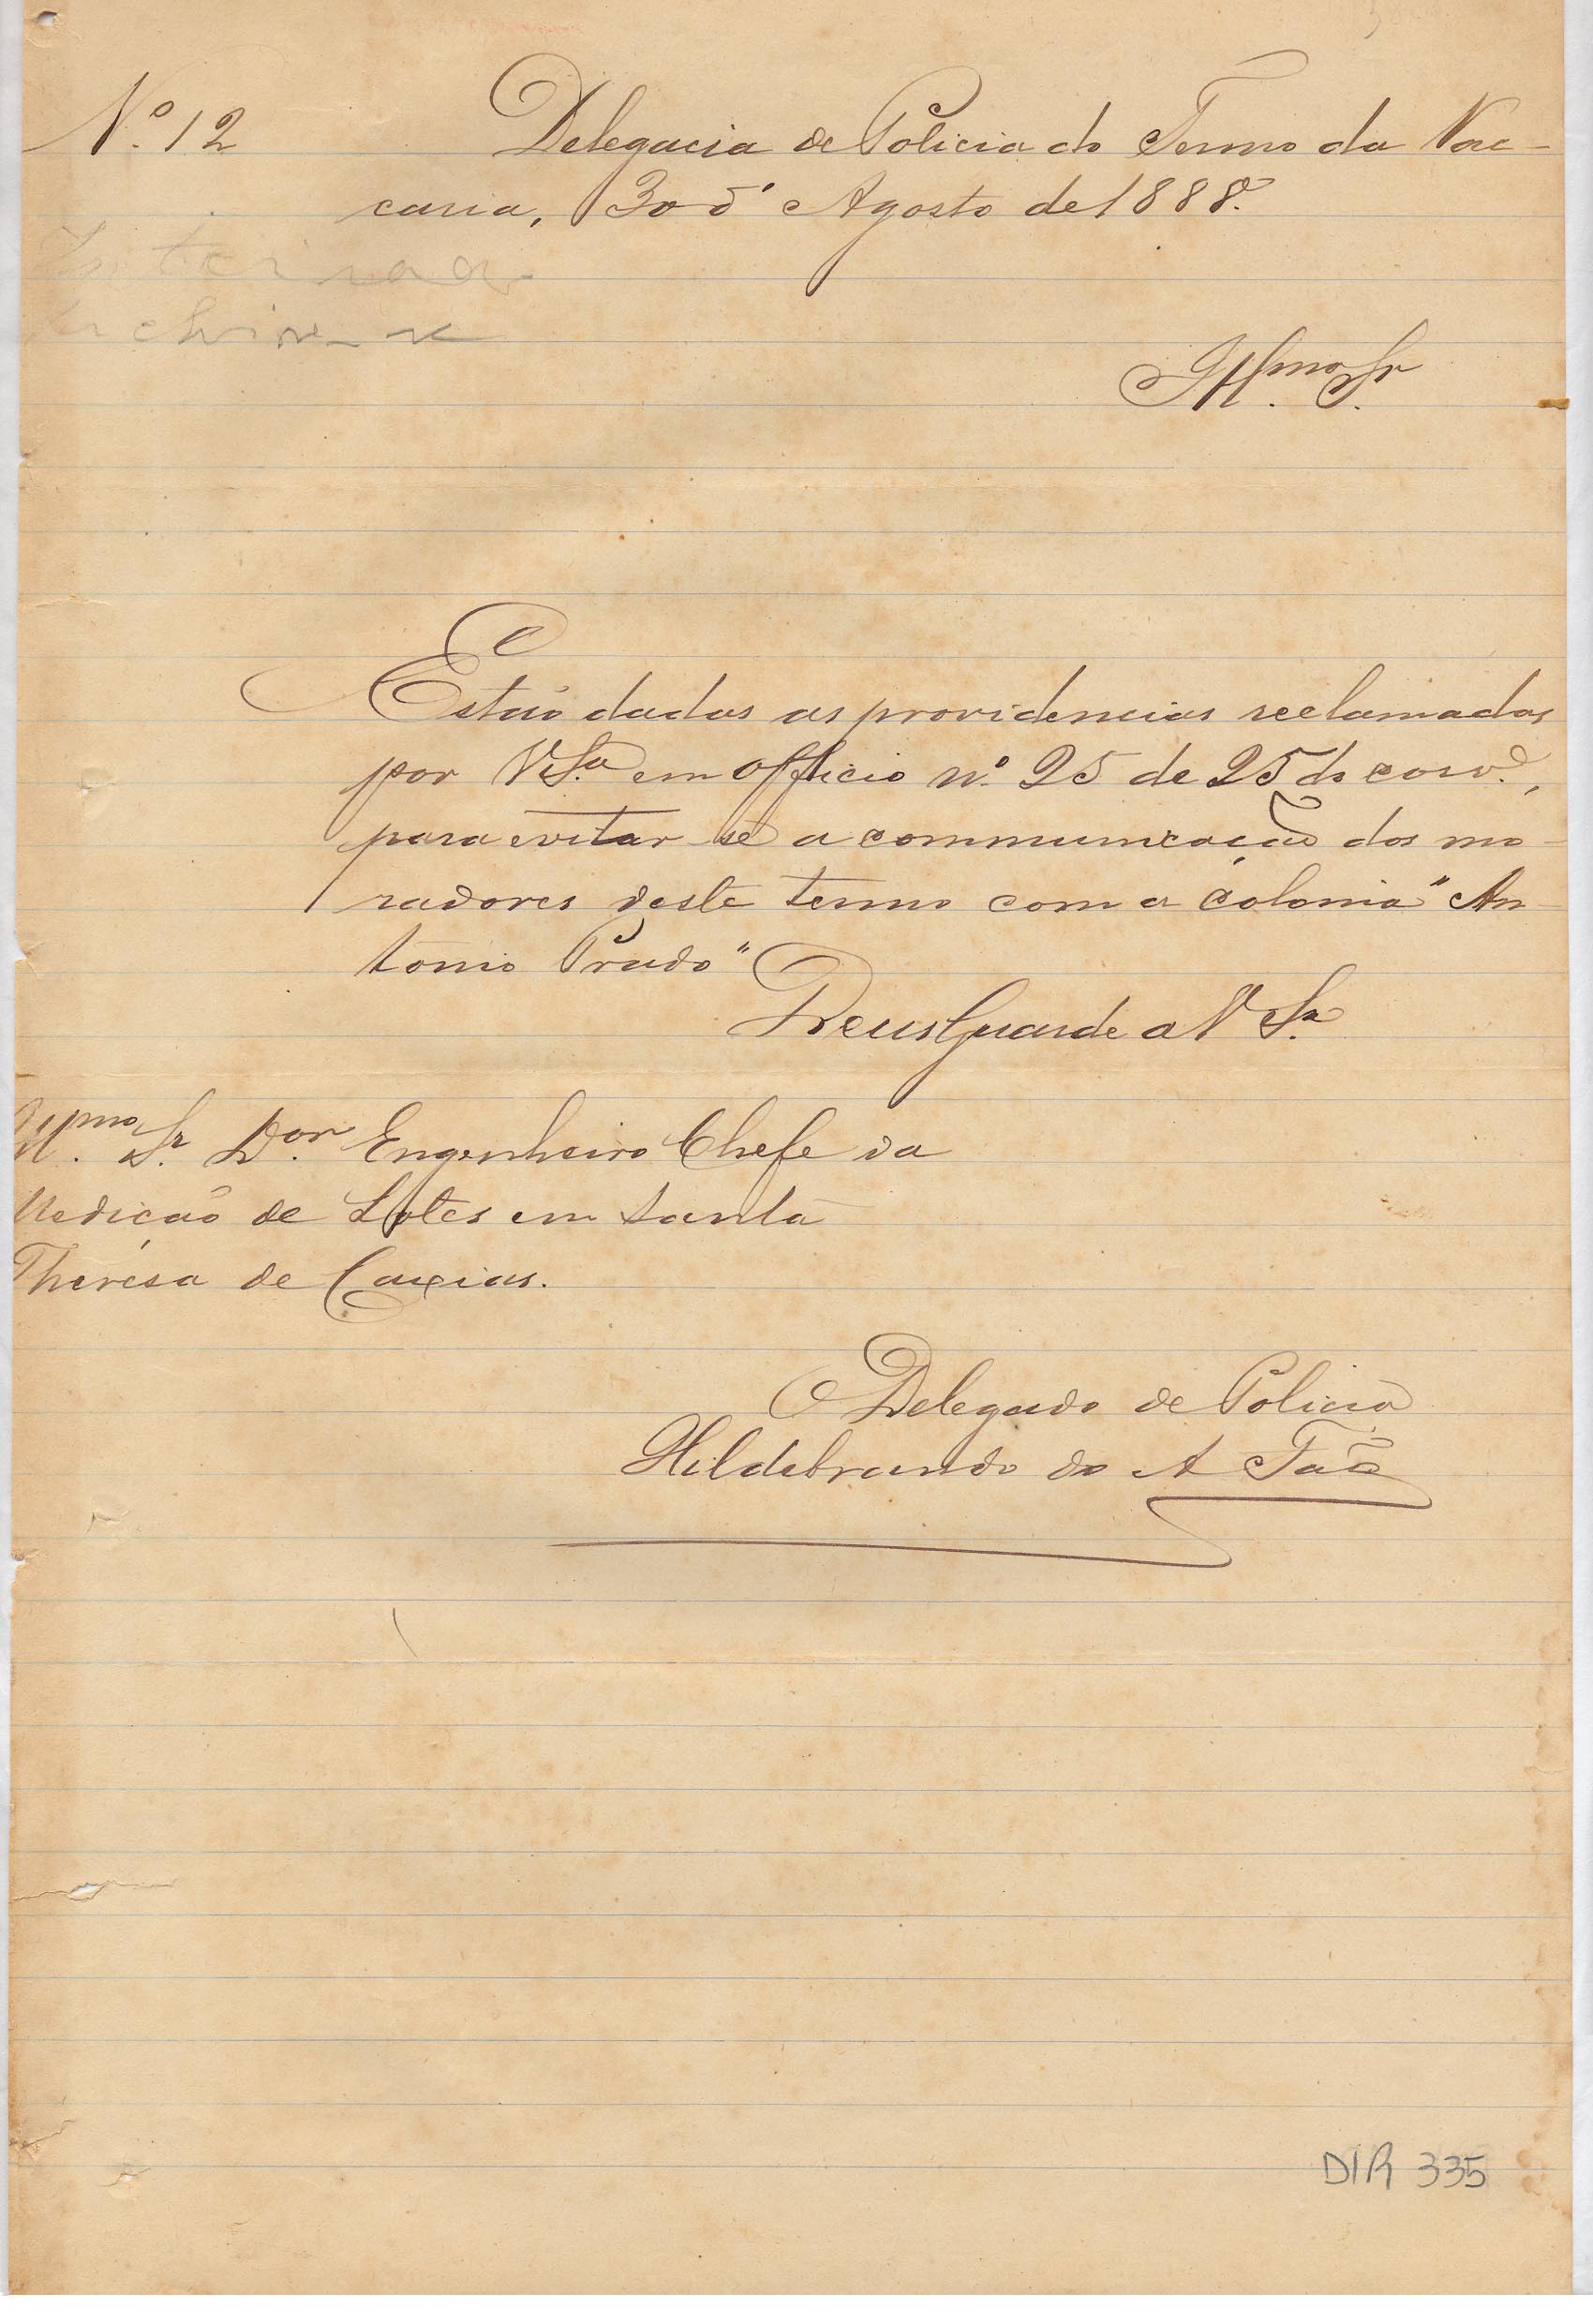 Nº 12
Delegacia de Policia do Termo da Vac-
caria, 30 d' Agosto de 1888.
Inteirado
Archive-se
Illmo Sr.
Estão dadas as providencias reclamadas
por V Sa. em officio nº 25 de 25 do corre.,
para evitar-se a communicação dos mo-
radores deste termo com a colonia "An-
tonio Prado"
Deus Guarde a V Sa.
Illmo. Sr. Dor. Engenheiro Chefe da
Medição de Lotes em Santa
Theresa de Caxias.
O Delegado de Policia
Hildebrando de A
DIR 335